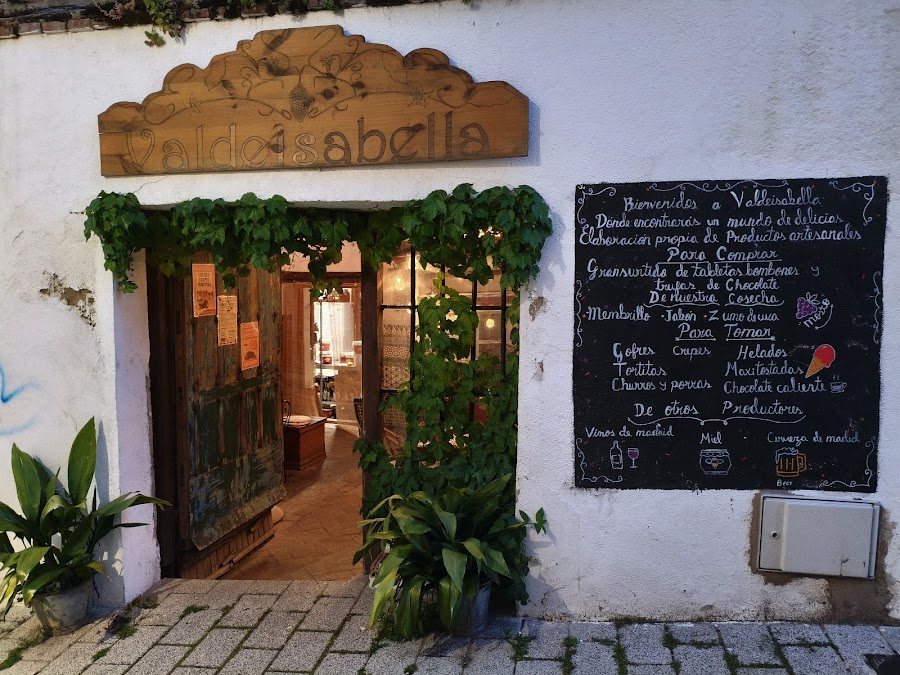 Valdeisabella
Bienvenidos a Valdeisabella
Dónde encontrarás un mundo de delicias
Elaboración propia de Productos artesanales
Para Comprar
Gran surtido de tabletas bombones y
trufas de Chocolate
De nuestra Cosecha
Membrillo · Jabón · Zumo de uva
mosto
Para Tomar
Gofres Crepes Helados
Tortitas Maxitostadas
Churros y porras Chocolate caliente
De otros Productores
Vinos de madrid Miel Cerveza de madrid
Beer